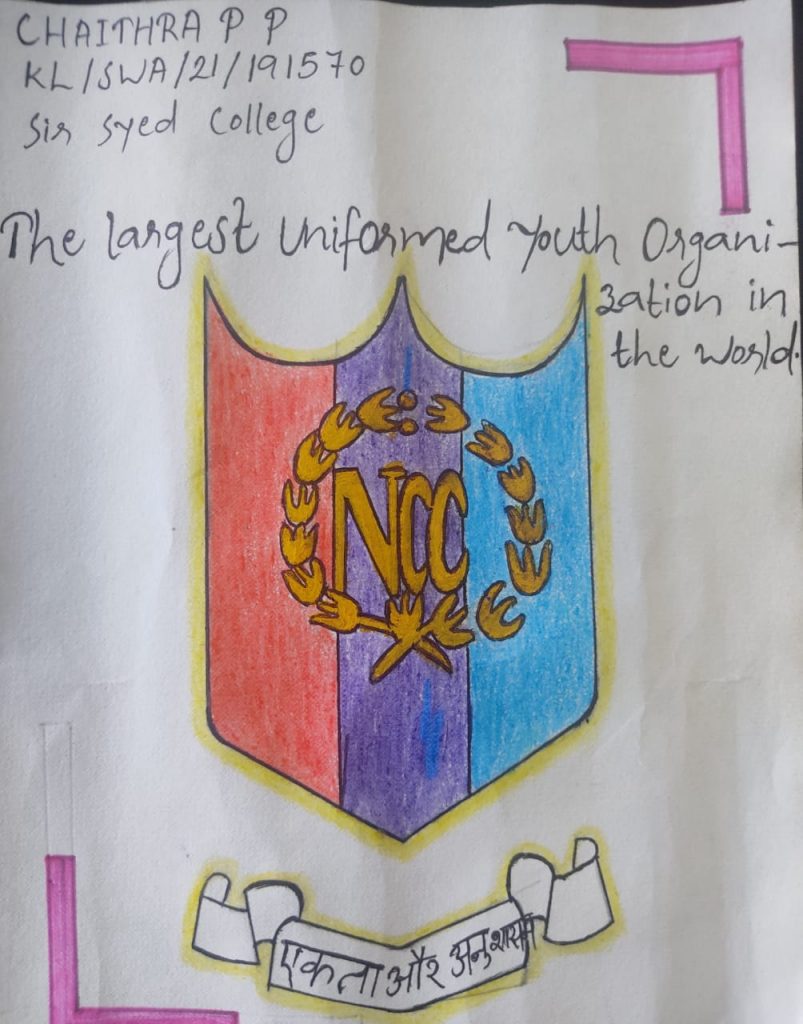 CHAITHRA P P
KL/SWA/21/191570
Sir Syed College
The largest Uniformed Youth Organi-
zation in
the world.
NCC
एकता और अनुशासन